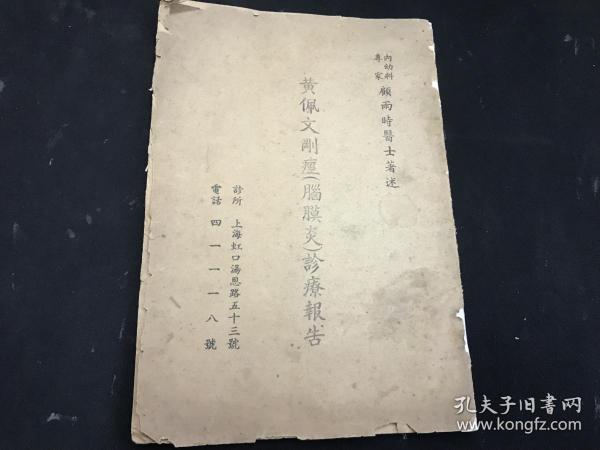 內幼科
專家
顧雨時醫士著述
黃佩文剛痙(腦膜炎)診療報告
診所 上海虹口湯恩路五十三號
電話 四一一一八號
孔夫子旧书网
www.kongfz.com